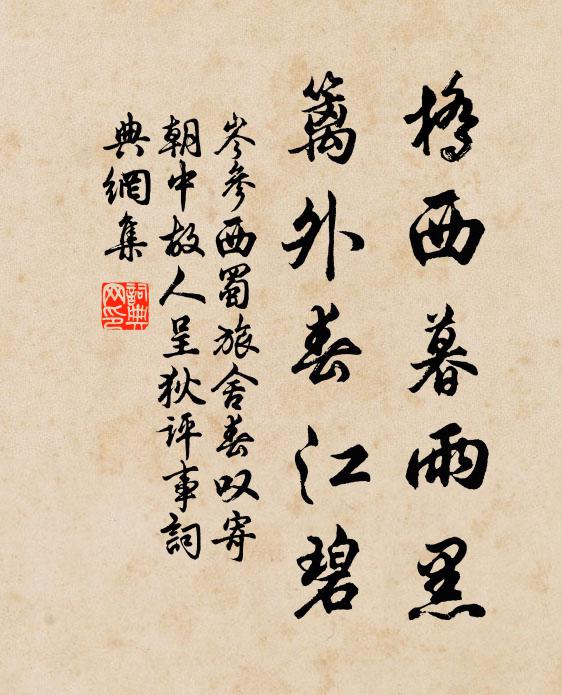 橋西暮雨黑
籬外春江碧
岑參西蜀旅舍春叹寄
朝中故人呈狄评事詞
典網集
詞典
网印